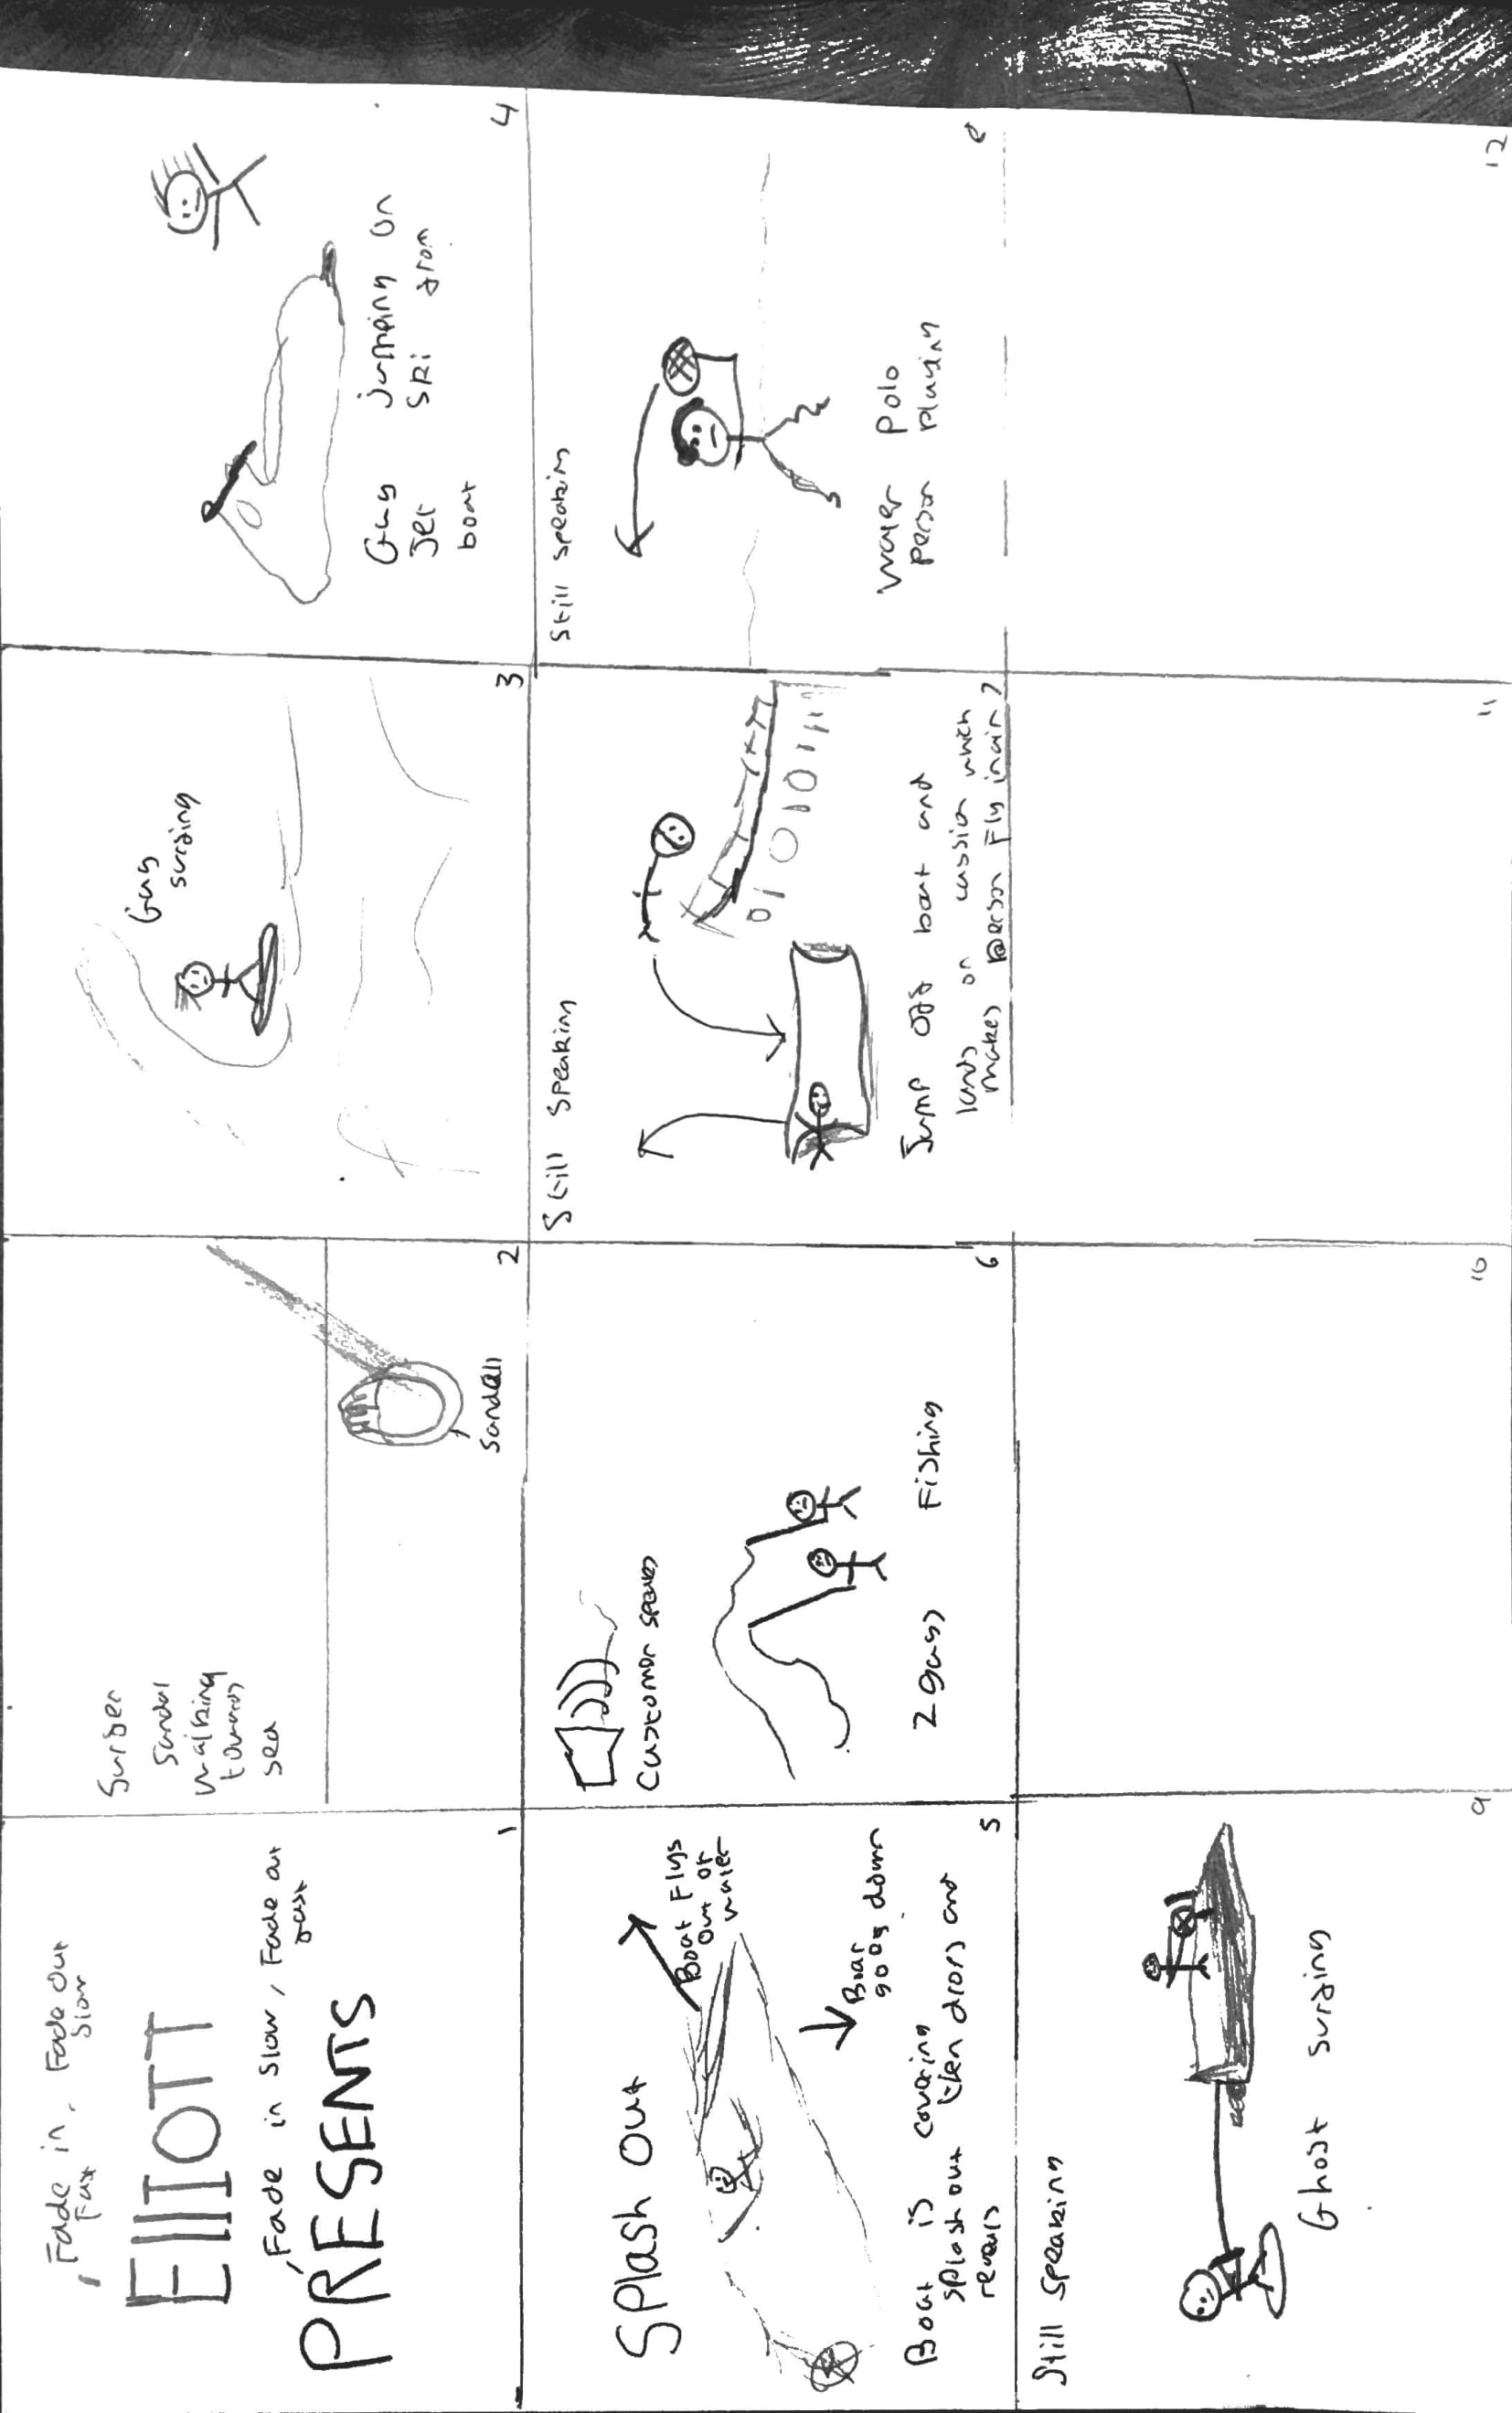 Fade in, Fade out
Fast
Slow
ElliOTT
Fade in Slow, Fade out
fast
PRESENTS
1
Surfer
Sandal
walking
towards
sea
Sandall
2
Guy
surfing
3
Guy jumping on
Jet Ski from
boat
4
Splash Out
Boat Flys
out of
water
Boat
goes down
Boat is covering
splash out then drops and
reveals
5
Customor speaks
2 guys Fishing
6
Still speaking
Jump off boat and
lands on cussion which
makes person Fly in air
7
Still speaking
Water Polo
Person playing
8
Still speaking
Ghost surfing
9
10
11
12